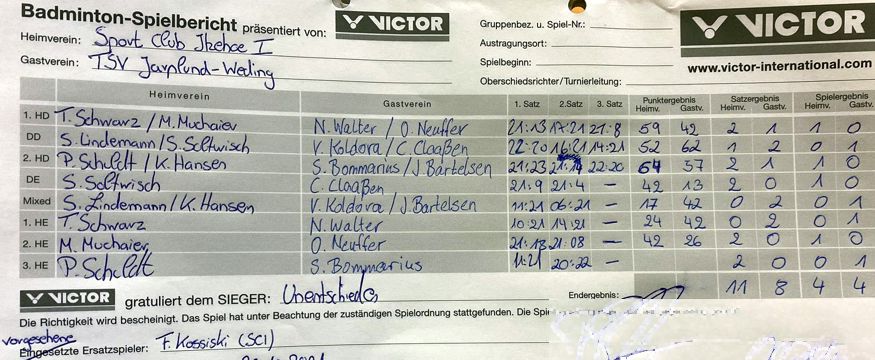 Badminton-Spielbericht präsentiert von: VICTOR Gruppenbez. u. Spiel-Nr.: VICTOR
Heimverein: Sport Club Itzehoe I Austragungsort:
Gastverein: TSV Jarplund-Weding Spielbeginn: www.victor-international.com
Oberschiedsrichter/Turnierleitung:
Heimverein Gastverein 1. Satz 2. Satz 3. Satz Punktergebnis Heimv. Gastv. Satzergebnis Heimv. Gastv. Spielergebnis Heimv. Gastv.
1. HD T. Schwarz / M. Muchaiev N. Walter / O. Neuffer 21:13 17:21 21:8 59 42 2 1 1 0
DD S. Lindemann / S. Soltwisch V. Koldova / C. Claaßen 22:20 16:21 14:21 52 62 1 2 0 1
2. HD P. Schuldt / K. Hansen S. Bommarius / J. Bartelsen 21:23 21:14 22:20 64 57 2 1 1 0
DE S. Soltwisch C. Claaßen 21:9 21:4 – 42 13 2 0 1 0
Mixed S. Lindemann / K. Hansen V. Koldova / J. Bartelsen 11:21 06:21 – 17 42 0 2 0 1
1. HE T. Schwarz N. Walter 10:21 14:21 – 24 42 0 2 0 1
2. HE M. Muchaiev O. Neuffer 21:18 21:08 – 42 26 2 0 1 0
3. HE P. Schuldt S. Bommarius 11:21 20:22 – 2 0 0 1
11 8 4 4
VICTOR gratuliert dem SIEGER: Unentschieden Endergebnis:
Die Richtigkeit wird bescheinigt. Das Spiel hat unter Beachtung der zuständigen Spielordnung stattgefunden. Die
vorgesehene
Eingesetzte Ersatzspieler: F. Kossiski (SCI)